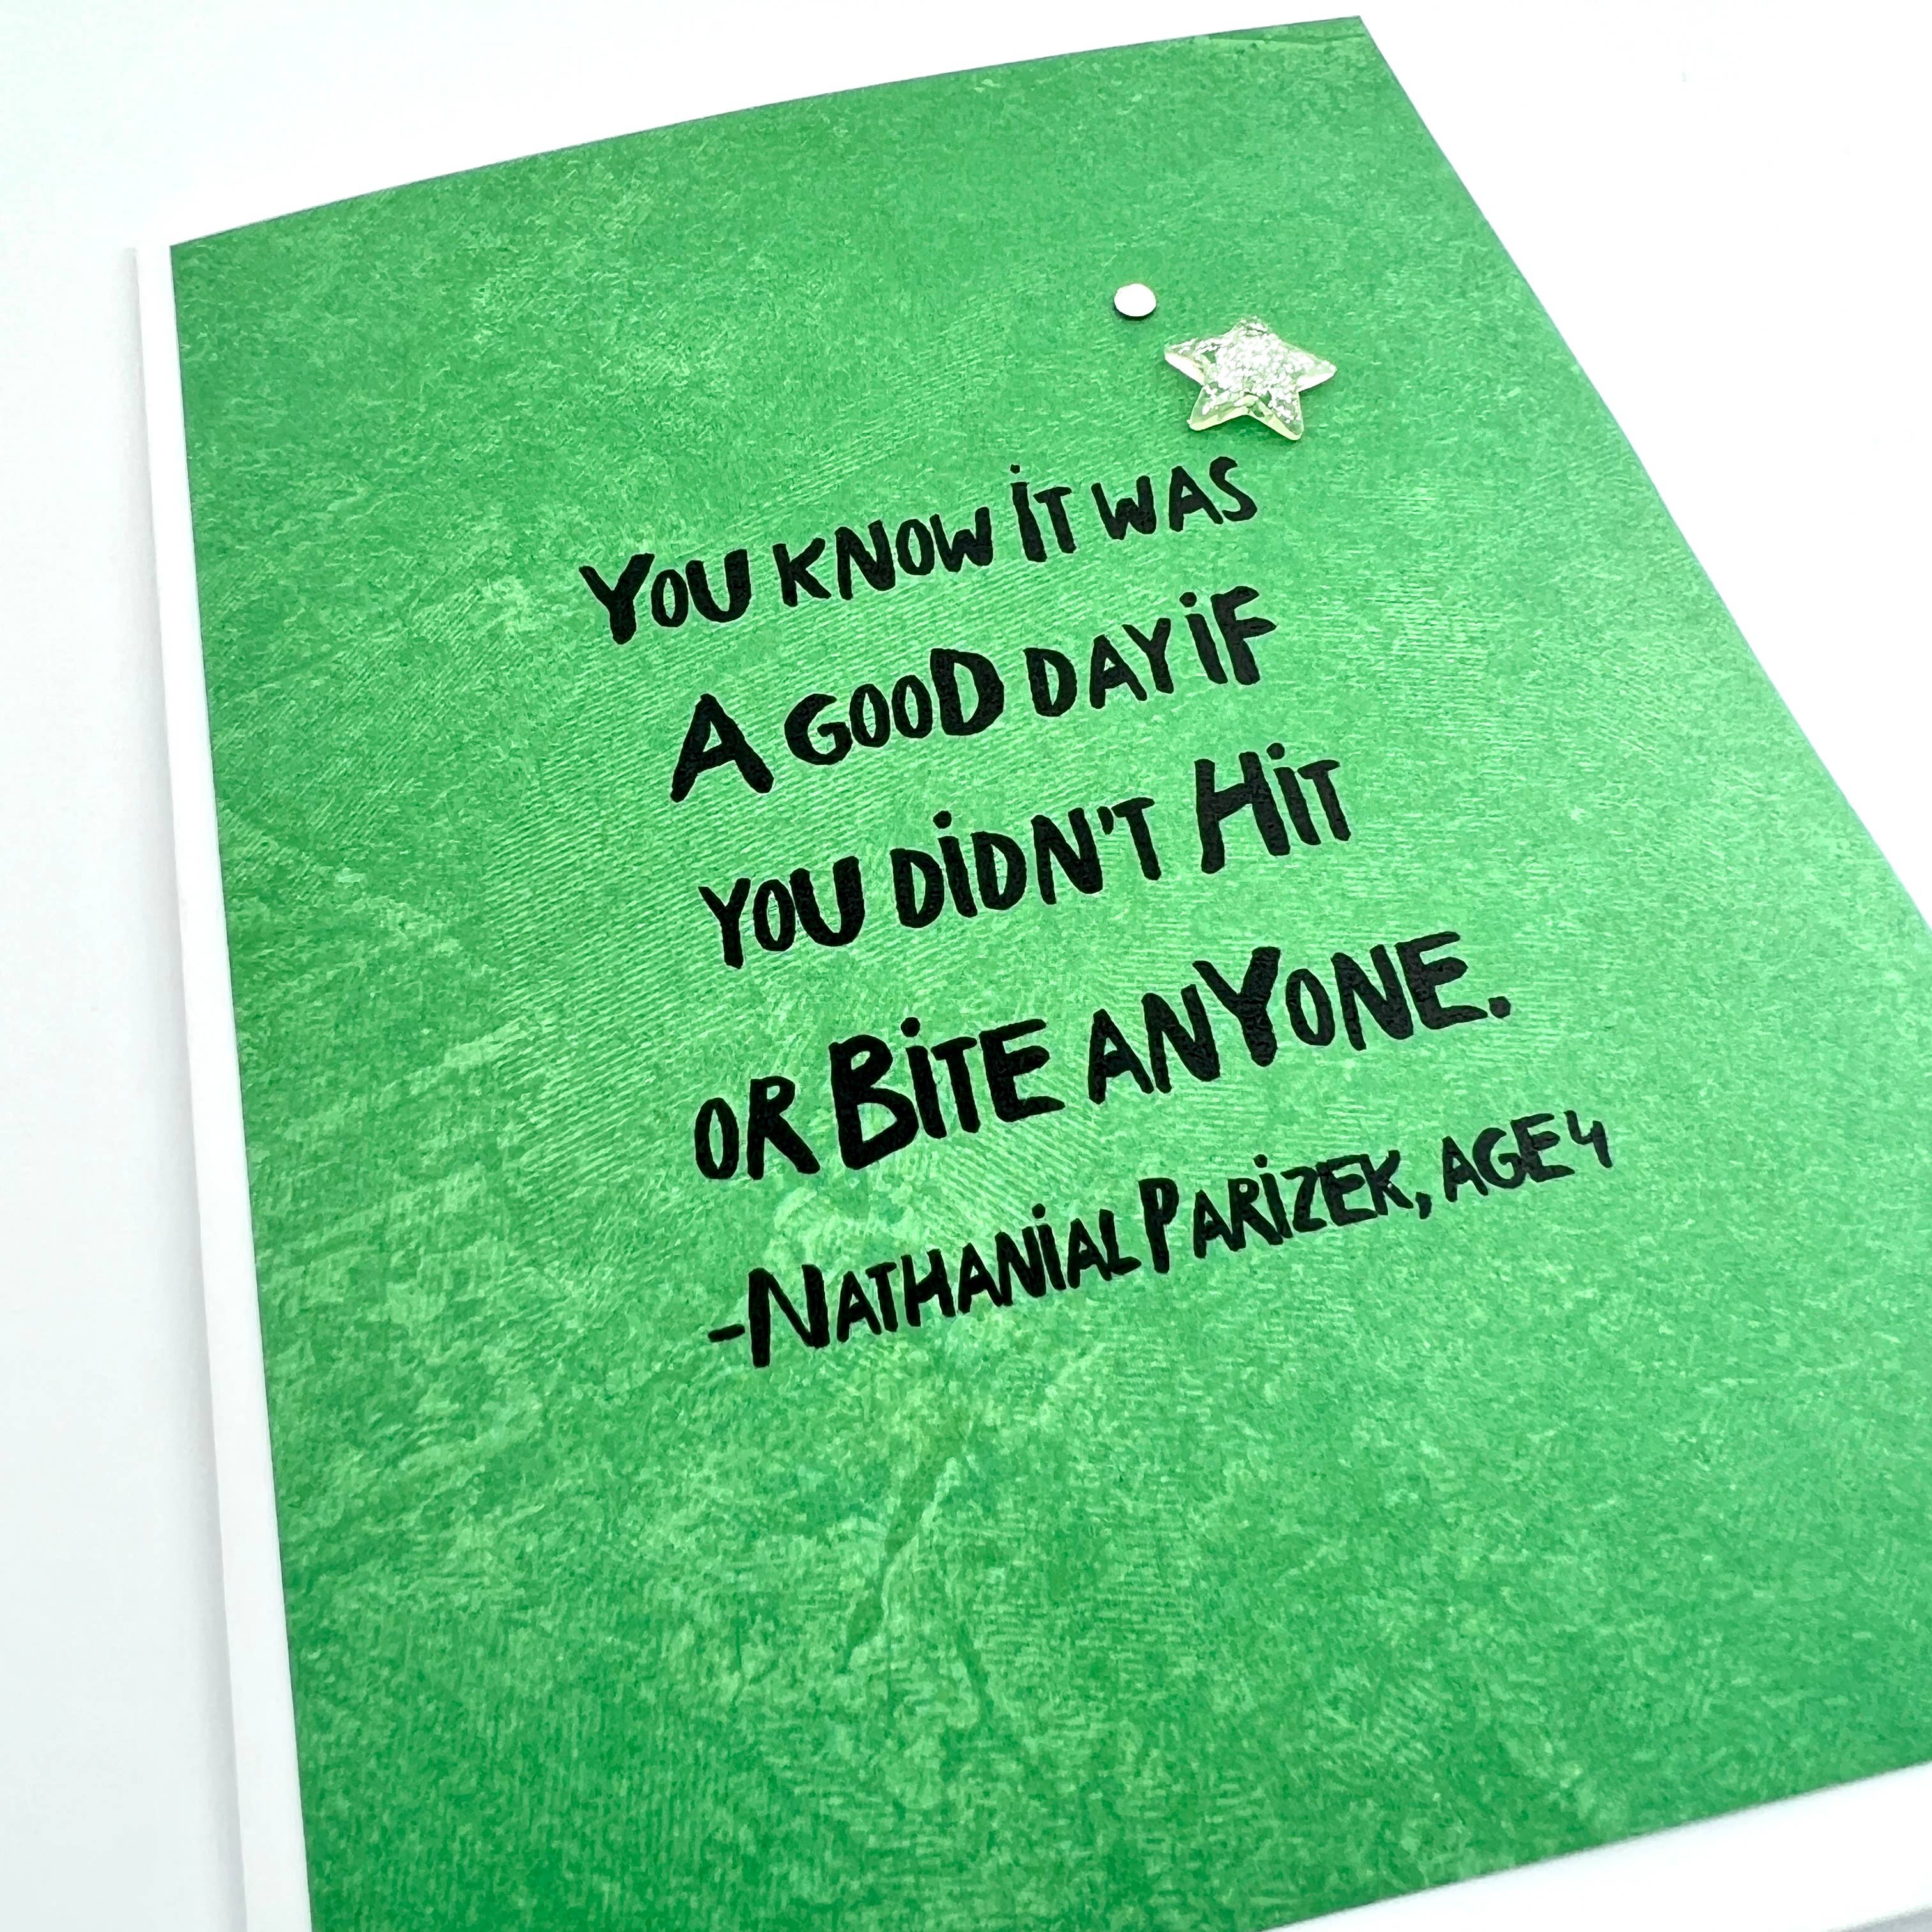 YOU KNOW IT WAS
A GOOD DAY IF
YOU DIDN'T HIT
OR BITE ANYONE.
-NATHANIAL PARIZEK, AGE 4